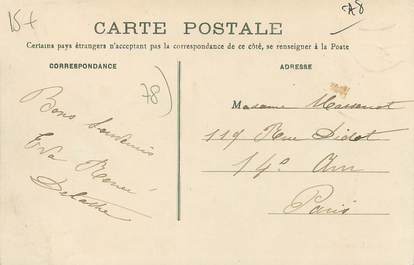 15+
78
CARTE POSTALE
Certains pays étrangers n'acceptant pas la correspondance de ce côté, se renseigner à la Poste
CORRESPONDANCE
ADRESSE
78
Bons Souvenirs
Eva René
Madame Massenot
119 Rue Didot
14e Arr
Paris